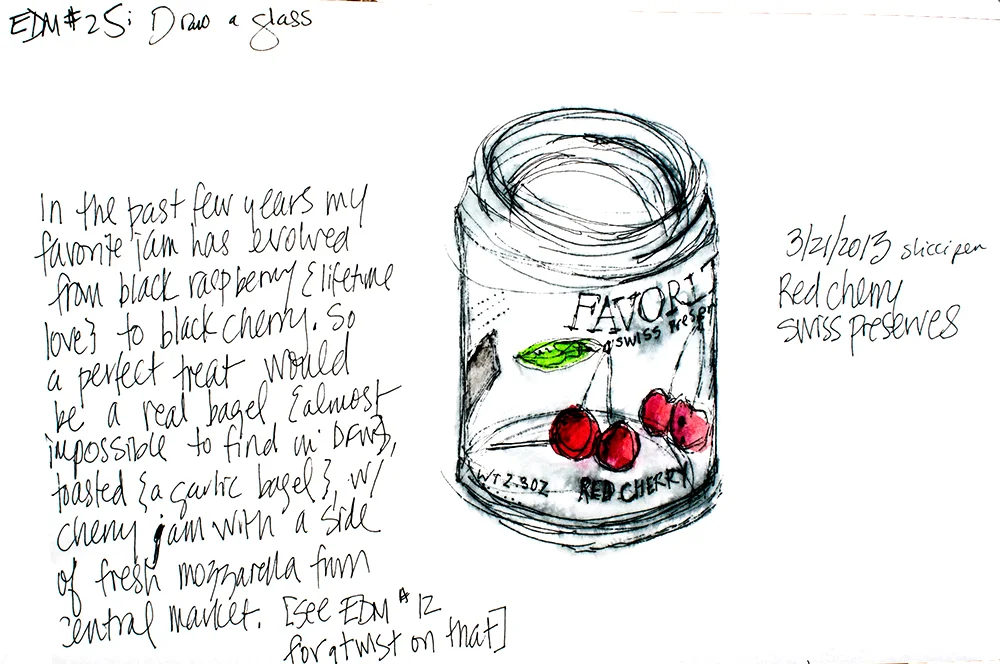 EDM #25: Draw a glass
In the past few years my
favorite jam has evolved
from black raspberry {lifetime
love} to black cherry. So
a perfect treat would
be a real bagel {almost
impossible to find in DFW},
toasted {a garlic bagel} w/
cherry jam with a side
of fresh mozzarella from
central market. [see EDM #12
for a twist on that]
FAVORIT
Swiss Preser
WT 2.3OZ
RED CHERRY
3/21/2013 slicci pen
Red cherry
Swiss preserves